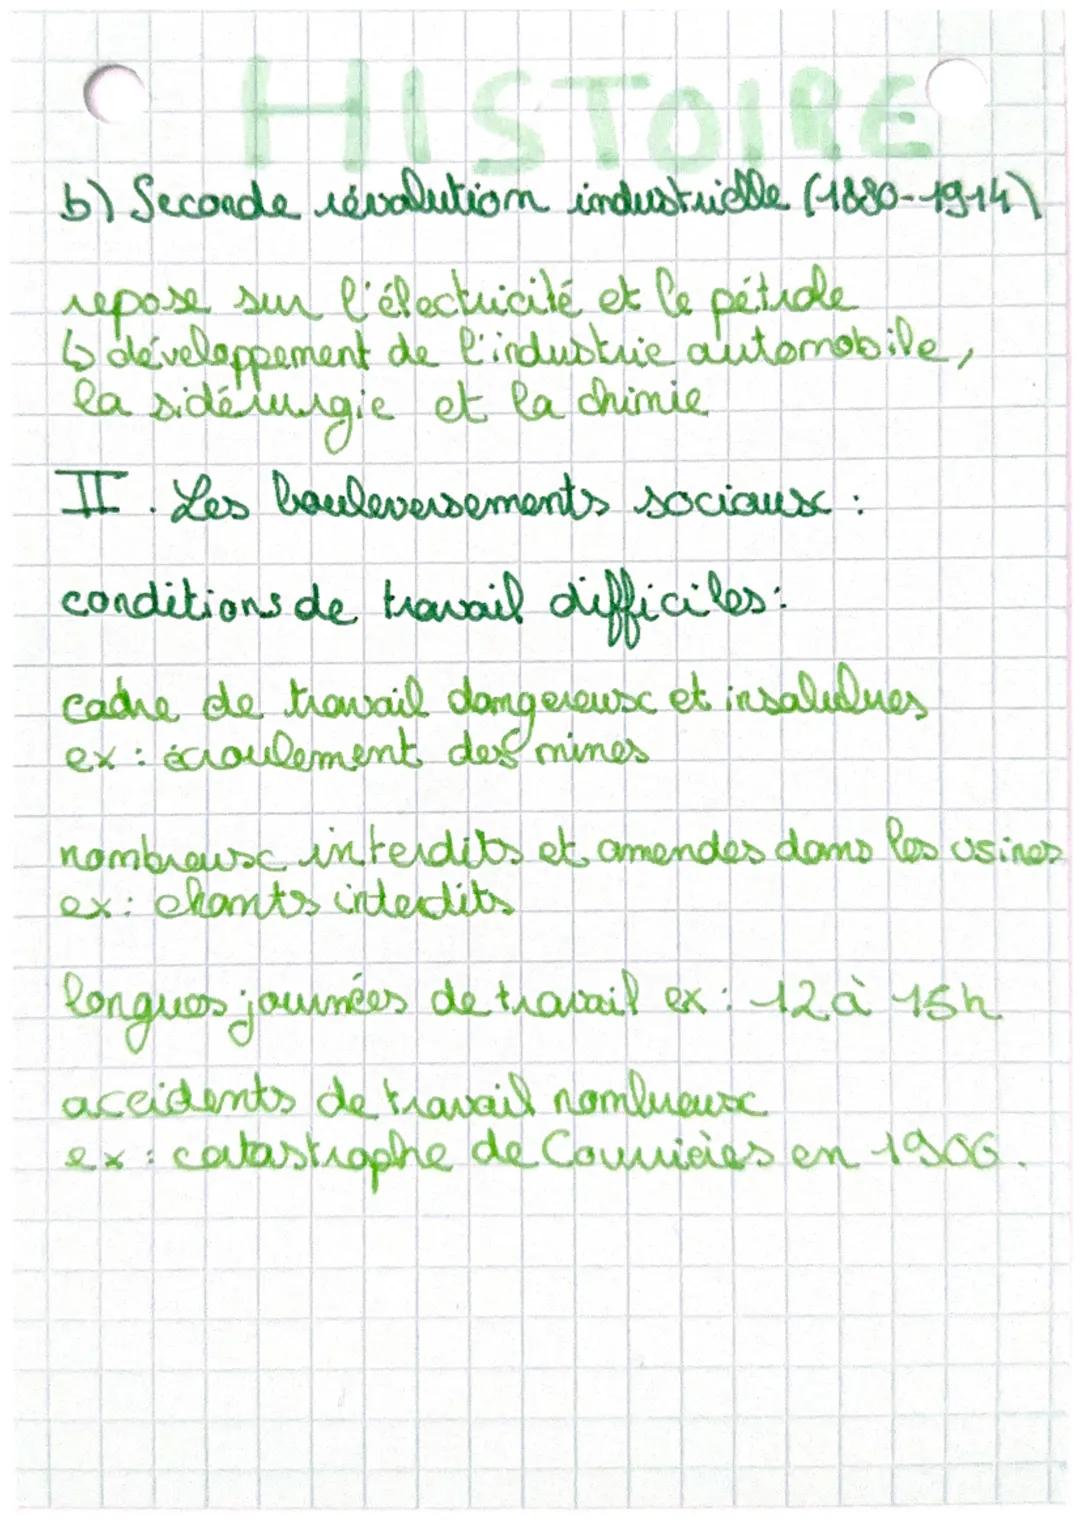 HISTOIRE
b) Seconde révolution industrielle (1880-1914)
repose sur l'électricité et le pétrole
↳ développement de l'industrie automobile,
la sidérurgie et la chimie
II. Les bouleversements sociaux :
conditions de travail difficiles :
cadre de travail dangereux et insalubres
ex : écroulement des mines
nombreux interdits et amendes dans les usines
ex : chants interdits
longues journées de travail ex : 12 à 15h
accidents de travail nombreux
ex : catastrophe de Courrières en 1906.